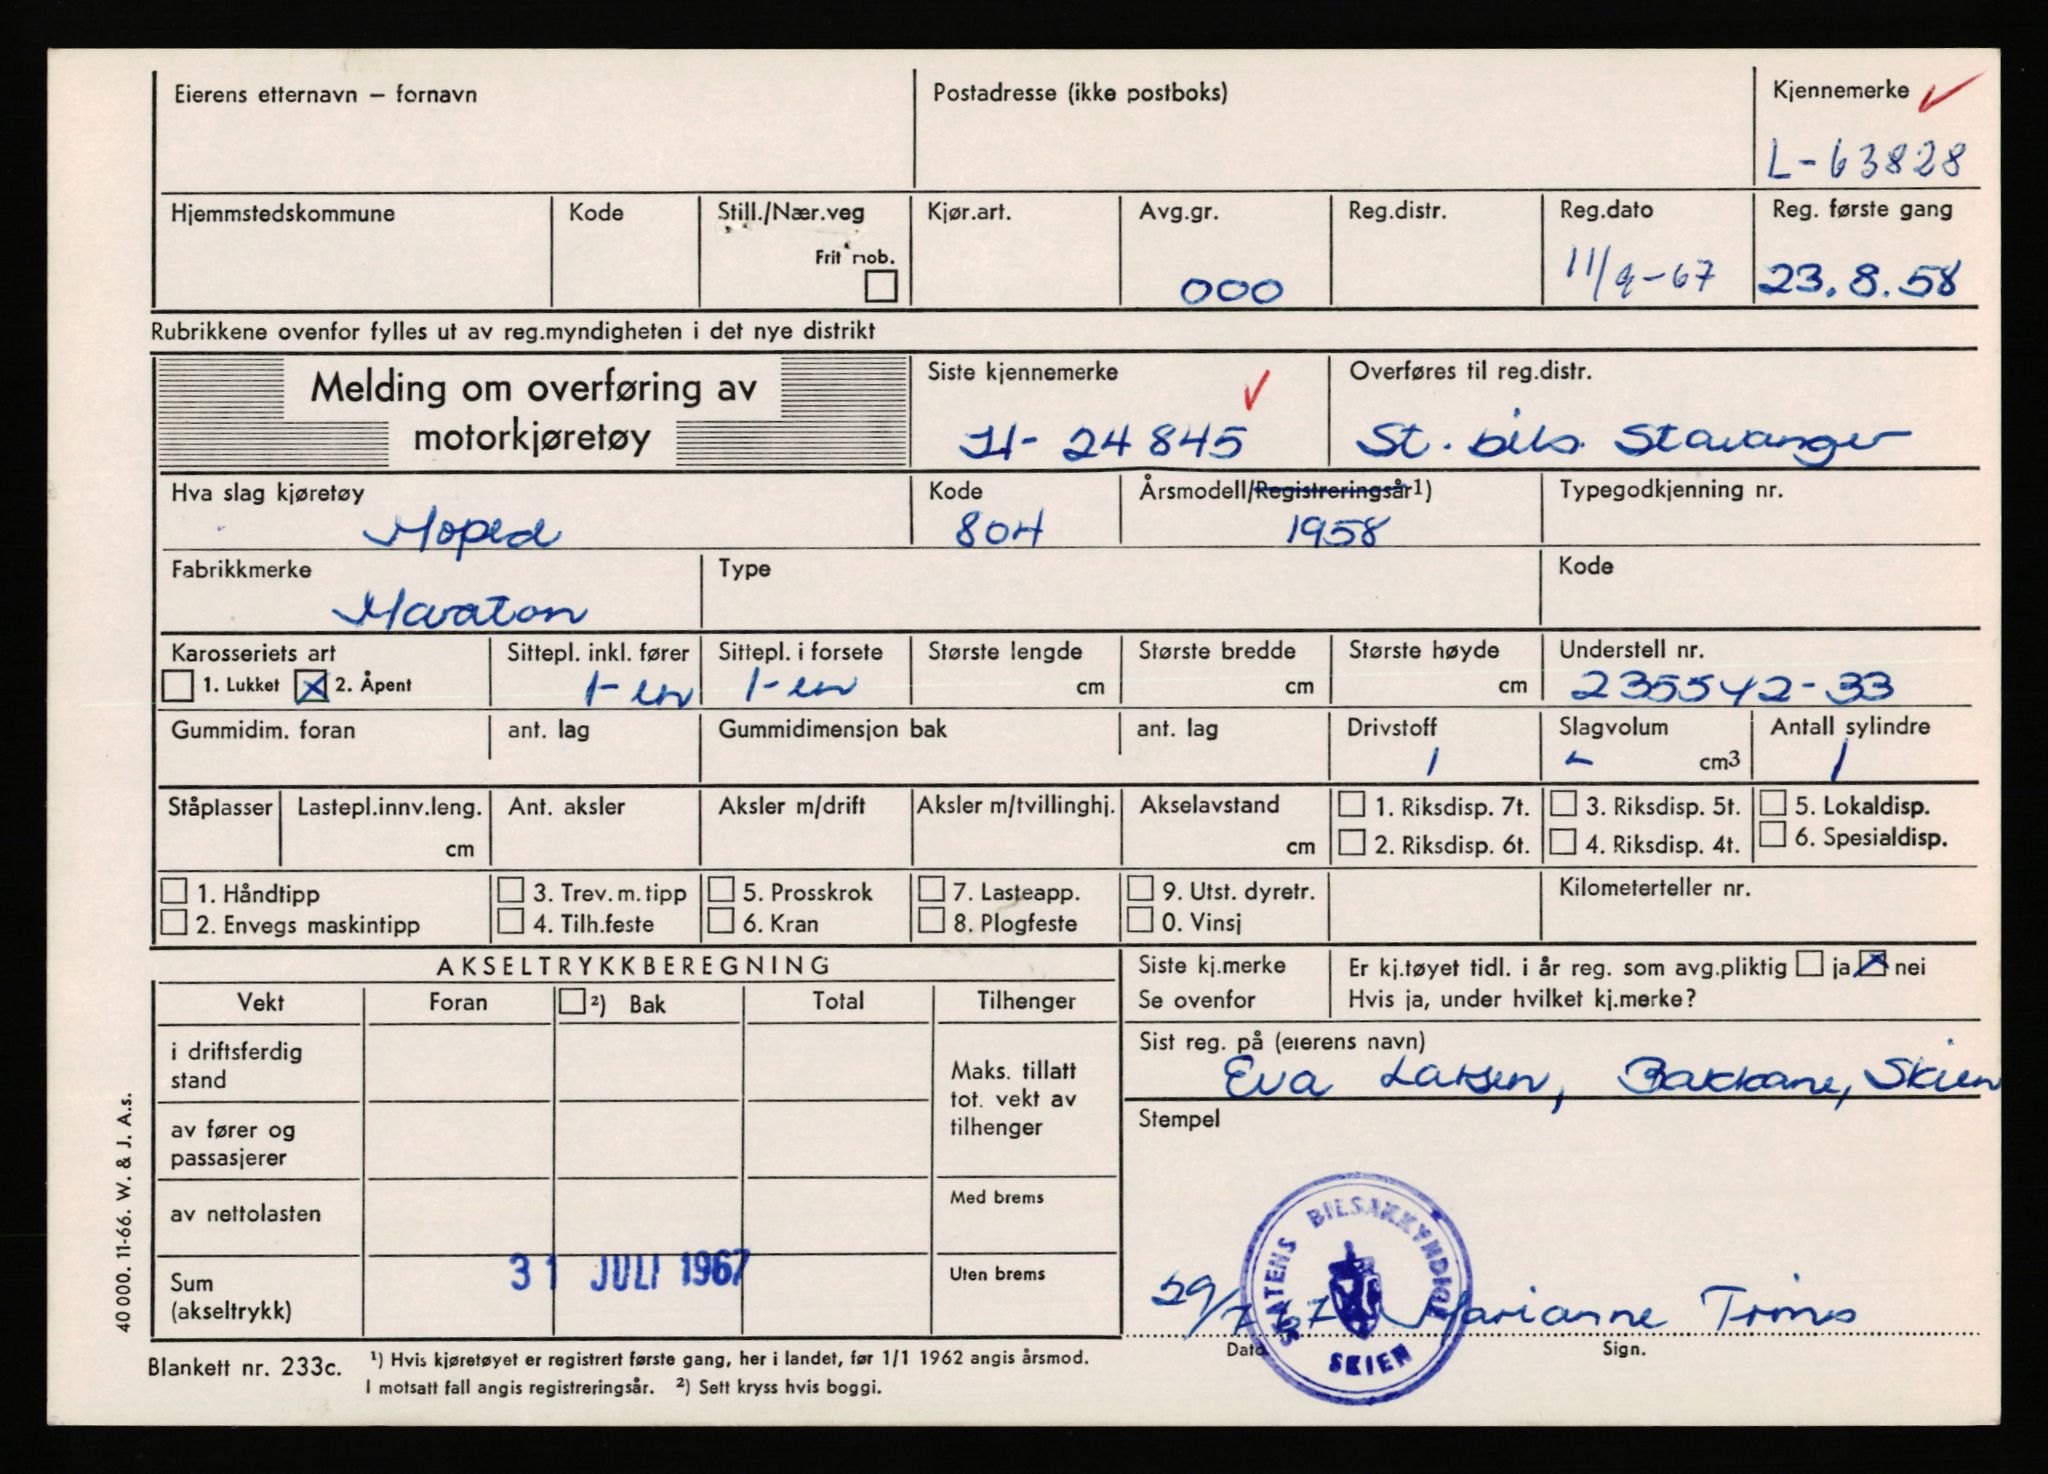 Eierens etternavn – fornavn Postadresse (ikke postboks) Kjennemerke
L-63828
Hjemmstedskommune Kode Still./Nær.veg Kjør.art. Avg.gr. Reg.distr. Reg.dato Reg. første gang
Frit mob.
000 11/9-67 23.8.58
Rubrikkene ovenfor fylles ut av reg.myndigheten i det nye distrikt
Melding om overføring av
motorkjøretøy
Siste kjennemerke Overføres til reg.distr.
H-24845 St. bils. Stavanger
Hva slag kjøretøy Kode Årsmodell/Registreringsår1) Typegodkjenning nr.
Moped 804 1958
Fabrikkmerke Type Kode
Maraton
Karosseriets art Sittepl. inkl. fører Sittepl. i forsete Største lengde Største bredde Største høyde Understell nr.
1. Lukket 2. Åpent 1-en 1-en cm cm cm 235542-33
Gummidim. foran ant. lag Gummidimensjon bak ant. lag Drivstoff Slagvolum Antall sylindre
1 - cm3 1
Ståplasser Lastepl.innv.leng. Ant. aksler Aksler m/drift Aksler m/tvillinghj. Akselavstand 1. Riksdisp. 7t. 3. Riksdisp. 5t. 5. Lokaldisp.
cm cm 2. Riksdisp. 6t. 4. Riksdisp. 4t. 6. Spesialdisp.
1. Håndtipp 3. Trev.m.tipp 5. Prosskrok 7. Lasteapp. 9. Utst. dyretr. Kilometerteller nr.
2. Envegs maskintipp 4. Tilh.feste 6. Kran 8. Plogfeste 0. Vinsj
AKSELTRYKKBEREGNING
Siste kj.merke Er kj.tøyet tidl. i år reg. som avg.pliktig ja nei
Se ovenfor Hvis ja, under hvilket kj.merke?
Vekt Foran 2) Bak Total Tilhenger
Sist reg. på (eierens navn)
Eva Larsen, Bakkane, Skien
i driftsferdig
stand
Maks. tillatt
tot. vekt av
tilhenger
Stempel
av fører og
passasjerer
av nettolasten
Med brems
Sum
(akseltrykk)
31 JULI 1967
Uten brems
STATENS BILSAKKYNDIGE
SKIEN
29/7 67 Marianne
Dato Sign.
40 000. 11-66. W. & J. A.s.
Blankett nr. 233c. 1) Hvis kjøretøyet er registrert første gang, her i landet, før 1/1 1962 angis årsmod.
I motsatt fall angis registreringsår. 2) Sett kryss hvis boggi.